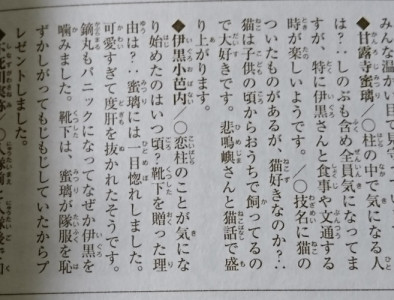 みんな温かい目で見
◆甘露寺蜜璃／〇柱の中で気になる人
は？：しのぶも含め全員気になってま
すが、特に伊黒さんと食事や文通する
時が楽しいようです。／〇技名に猫の
ついたものがあるが、猫好きなのか？：
猫は子供の頃からおうちで飼ってるの
で大好きです。悲鳴嶼さんと猫話で盛
り上がります。
◆伊黒小芭内／〇恋柱のことが気にな
り始めたのはいつ頃？靴下を贈った理
由は？：蜜璃には一目惚れしました。
可愛すぎて度肝を抜かれたそうです。
鏑丸もパニックになってなぜか伊黒を
噛みました。靴下は、蜜璃が隊服を恥
ずかしがってもじもじしていたからプ
レゼントしました。